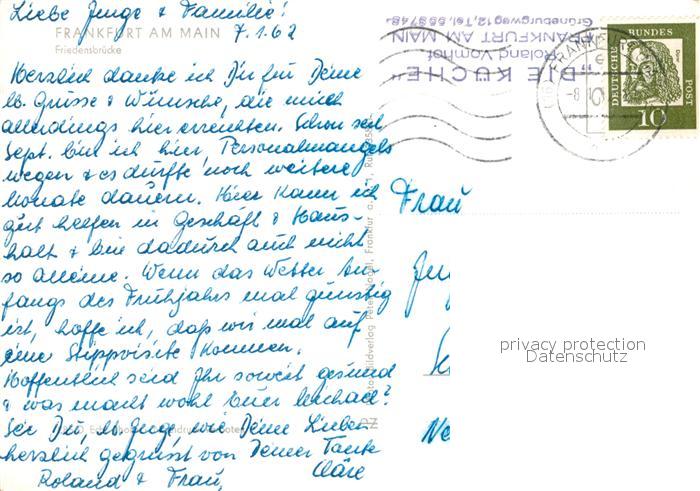 Liebe Inge & Familie!
FRANKFURT AM MAIN
7.1.62
Friedensbrücke
Herzlich danke ich Dir für Deine
lb. Grüsse & Wünsche, die mich
allerdings hier erreichten. Schon seit
Sept. bin ich hier, Personalmangels
wegen & es dürfte noch weitere
Monate dauern. Hier kann ich
gut helfen in Geschäft & Haus-
halt & bin dadurch auch nicht
so alleine. Wenn das Wetter An-
fangs des Frühjahrs mal günstig
ist, hoffe ich, daß wir mal auf
eine Stippvisite kommen.
Hoffentlich seid Ihr soweit gesund
& was macht wohl Euer
Sei Du, lb. Inge, wie Deine Lieben
herzlich gegrüsst von Deiner Tante
Kläre
Roland & Frau.
"DIE KÜCHE"
Roland Vornhof
FRANKFURT AM MAIN
Grüneburgweg 12, Tel. 559748
FRANKFURT
-8
DEUTSCHE BUNDESPOST
10
Frau
privacy protection
Datenschutz